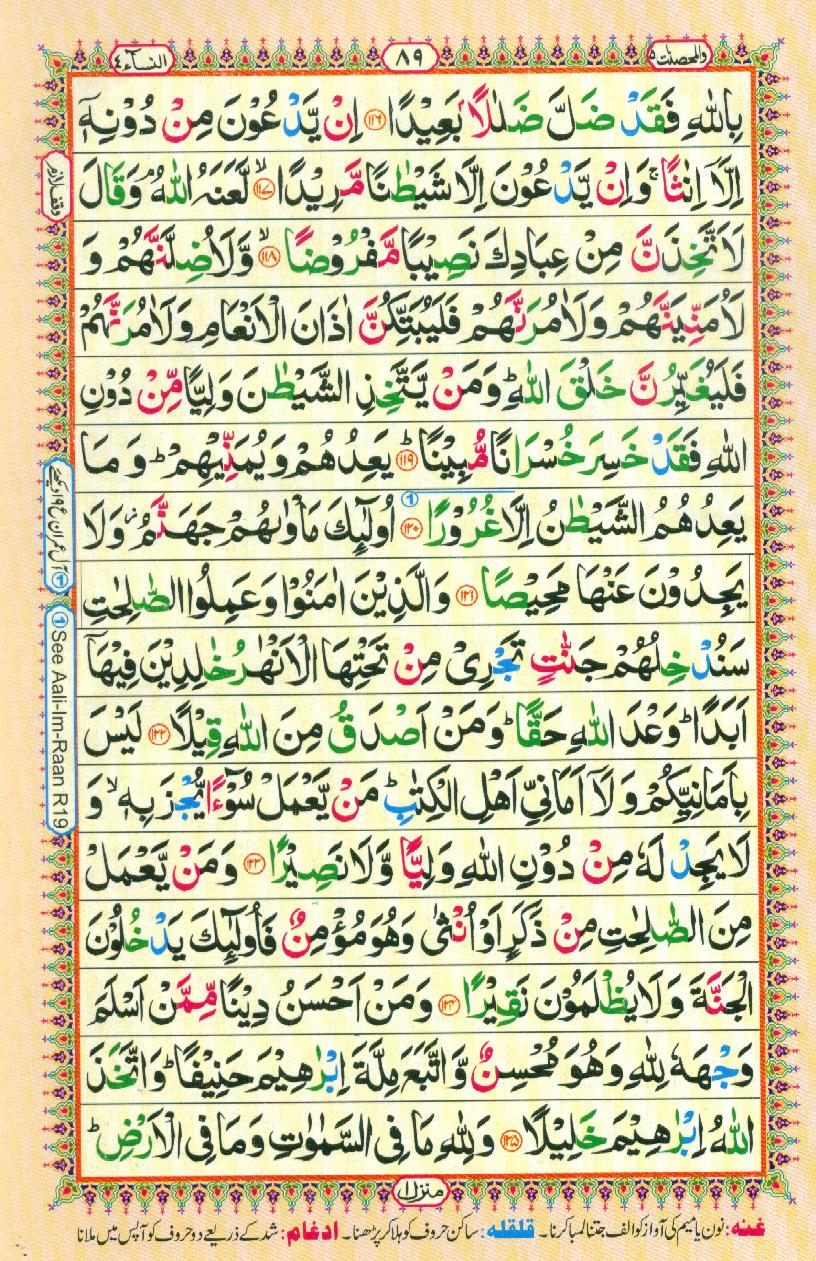 والمحصنت ۵
۸۹
النسآء ۴
بِاللّٰهِ فَقَدْ ضَلَّ ضَلٰلًۢا بَعِیْدًا ﴿۱۱۶﴾ اِنْ یَّدْعُوْنَ مِنْ دُوْنِهٖۤ
اِلَّاۤ اِنٰثًا ۚ وَ اِنْ یَّدْعُوْنَ اِلَّا شَیْطٰنًا مَّرِیْدًا ﴿۱۱۷﴾ ۙ لَّعَنَهُ اللّٰهُ ۘ وَ قَالَ
لَاَتَّخِذَنَّ مِنْ عِبَادِكَ نَصِیْبًا مَّفْرُوْضًا ﴿۱۱۸﴾ ۙ وَّ لَاُضِلَّنَّهُمْ وَ
لَاُمَنِّیَنَّهُمْ وَ لَاٰمُرَنَّهُمْ فَلَیُبَتِّكُنَّ اٰذَانَ الْاَنْعَامِ وَ لَاٰمُرَنَّهُمْ
فَلَیُغَیِّرُنَّ خَلْقَ اللّٰهِ ؕ وَ مَنْ یَّتَّخِذِ الشَّیْطٰنَ وَلِیًّا مِّنْ دُوْنِ
اللّٰهِ فَقَدْ خَسِرَ خُسْرَانًا مُّبِیْنًا ﴿۱۱۹﴾ ؕ یَعِدُهُمْ وَ یُمَنِّیْهِمْ ؕ وَ مَا
یَعِدُهُمُ الشَّیْطٰنُ اِلَّا غُرُوْرًا ﴿۱۲۰﴾ ① اُولٰٓىِٕكَ مَاْوٰىهُمْ جَهَنَّمُ ؗ وَ لَا
یَجِدُوْنَ عَنْهَا مَحِیْصًا ﴿۱۲۱﴾ وَ الَّذِیْنَ اٰمَنُوْا وَ عَمِلُوا الصّٰلِحٰتِ
سَنُدْخِلُهُمْ جَنّٰتٍ تَجْرِیْ مِنْ تَحْتِهَا الْاَنْهٰرُ خٰلِدِیْنَ فِیْهَاۤ
اَبَدًا ؕ وَعْدَ اللّٰهِ حَقًّا ؕ وَ مَنْ اَصْدَقُ مِنَ اللّٰهِ قِیْلًا ﴿۱۲۲﴾ لَیْسَ
بِاَمَانِیِّكُمْ وَ لَاۤ اَمَانِیِّ اَهْلِ الْكِتٰبِ ؕ مَنْ یَّعْمَلْ سُوْٓءًا یُّجْزَ بِهٖ ۙ وَ
لَا یَجِدْ لَهٗ مِنْ دُوْنِ اللّٰهِ وَلِیًّا وَّ لَا نَصِیْرًا ﴿۱۲۳﴾ وَ مَنْ یَّعْمَلْ
مِنَ الصّٰلِحٰتِ مِنْ ذَكَرٍ اَوْ اُنْثٰی وَ هُوَ مُؤْمِنٌ فَاُولٰٓىِٕكَ یَدْخُلُوْنَ
الْجَنَّةَ وَ لَا یُظْلَمُوْنَ نَقِیْرًا ﴿۱۲۴﴾ وَ مَنْ اَحْسَنُ دِیْنًا مِّمَّنْ اَسْلَمَ
وَجْهَهٗ لِلّٰهِ وَ هُوَ مُحْسِنٌ وَّ اتَّبَعَ مِلَّةَ اِبْرٰهِیْمَ حَنِیْفًا ؕ وَ اتَّخَذَ
اللّٰهُ اِبْرٰهِیْمَ خَلِیْلًا ﴿۱۲۵﴾ وَ لِلّٰهِ مَا فِی السَّمٰوٰتِ وَ مَا فِی الْاَرْضِ ؕ
وقف لازم
① آل عمران ع ۱۹ دیکھیے
① See Aali-Im-Raan R19
منزل ۱
غنه: نون یا میم کی آواز کو الف جتنا لمبا کرنا۔ قلقله: ساکن حروف کو ہلا کر پڑھنا۔ ادغام: شد کے ذریعے دو حروف کو آپس میں ملانا